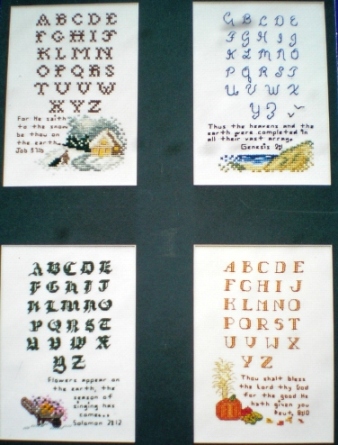 A B C D E
F G H I F
K L M N
O P Q R S
T U V W
X Y Z
For He saith
to the snow
be thou on
the earth.
Job
G B C D E
F G H I J
K L M N O
P Q R S T
U V W X
Y Z
Thus the heavens and the
earth were completed in
all their vast array.
Genesis
A B C D E
F G H I J
K L M N O
P Q R S T
U V W X
Y Z
Flowers appear on
the earth, the
season of
singing has
come...
Solomon 2:12
A B C D E
F G H I J
K L M N O
P Q R S T
U V W X
Y Z
Thou shalt bless
the Lord thy God
for the good He
hath given you